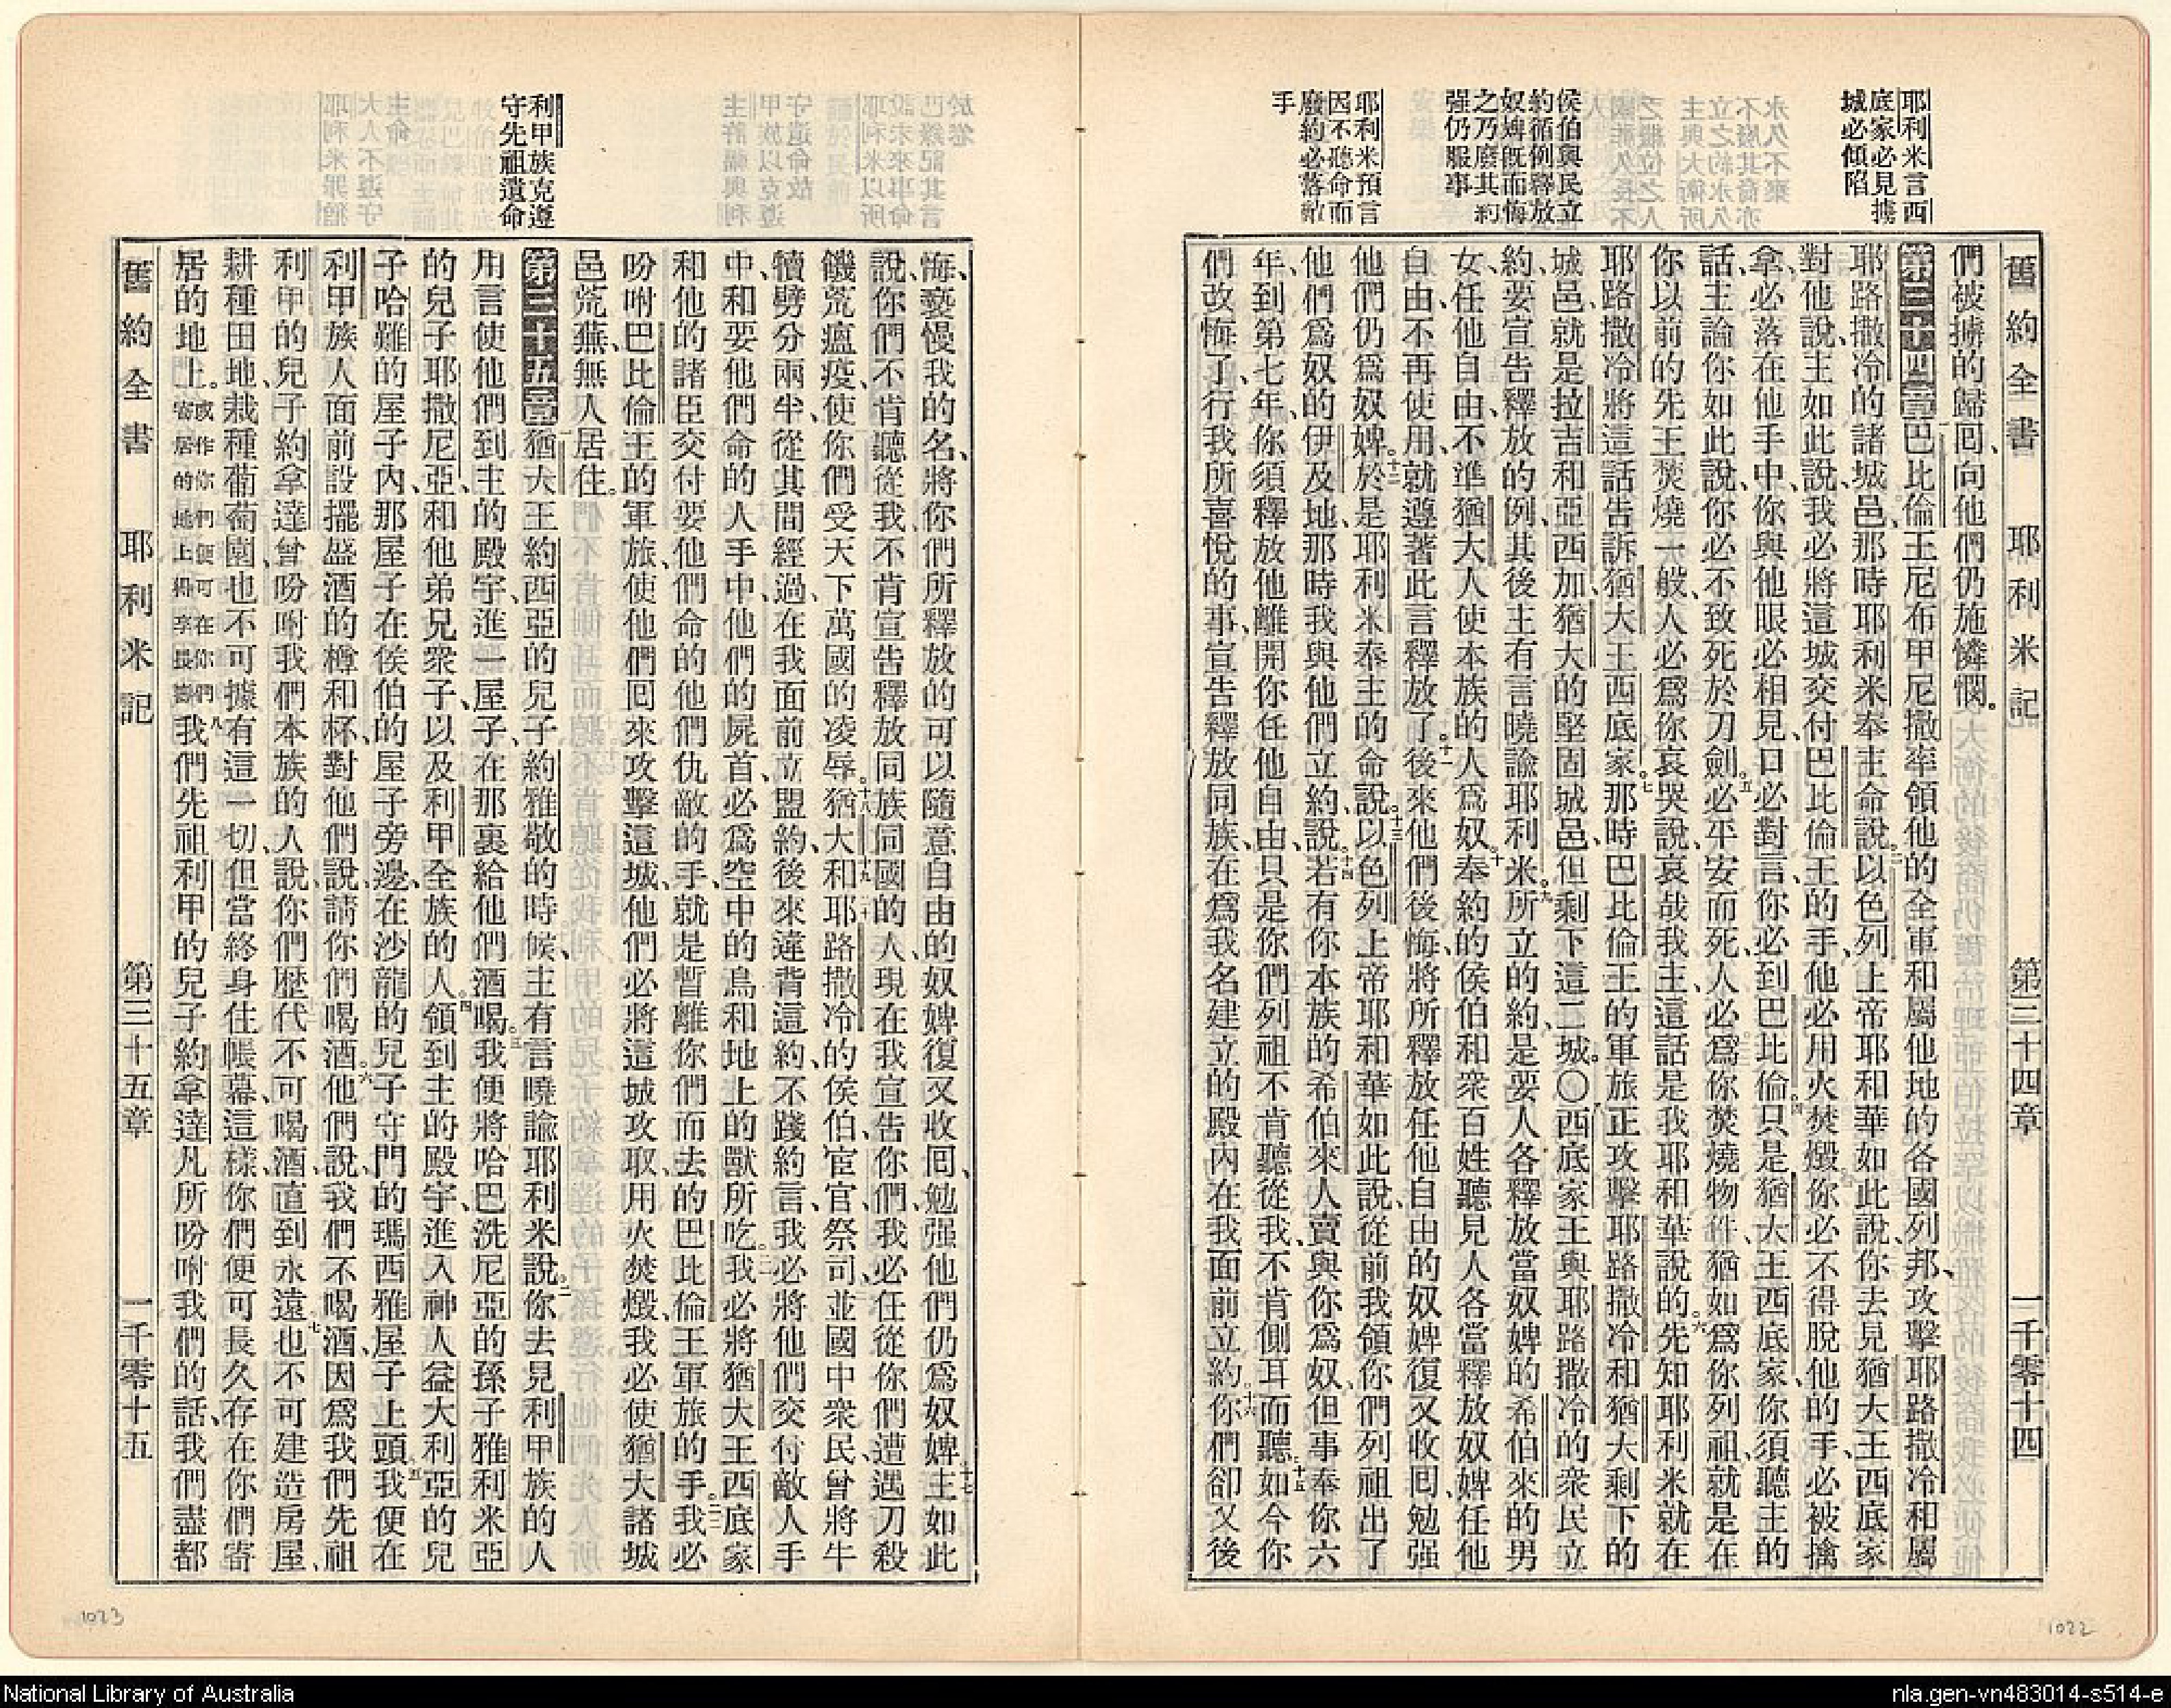 耶利米言西
底家必見擄
城必傾陷
侯伯與民立
約循例釋放
奴婢旣而悔
之乃廢其約
强仍服事
耶利米預言
因不聽命而
廢約必落敵
手
舊約全書 耶利米記 第三十四章 一千零十四
們被擄的歸回、向他們仍施憐憫。
第三十四章巴比倫王尼布甲尼撒率領他的全軍和屬他地的各國列邦、攻擊耶路撒冷和屬
耶路撒冷的諸城邑、那時耶利米奉主命說、以色列上帝耶和華如此說、你去見猶大王西底家
對他說、主如此說、我必將這城交付巴比倫王的手、他必用火焚燬、你必不得脫他的手、必被擒
拿、必落在他手中、你與他眼必相見、口必對言、你必到巴比倫。只是猶大王西底家、你須聽主的
話、主論你如此說、你必不致死於刀劍。必平安而死、人必爲你焚燒物件、猶如爲你列祖、就是在
你以前的先王焚燒一般、人必爲你哀哭、說、哀哉我主、這話是我耶和華說的。先知耶利米就在
耶路撒冷將這話告訴猶大王西底家。那時巴比倫王的軍旅正攻擊耶路撒冷和猶大剩下的
城邑、就是拉吉和亞西加、猶大的堅固城邑、但剩下這二城。〇西底家王與耶路撒冷的衆民立
約、要宣告釋放的例、其後主有言曉諭耶利米。所立的約、是要人各釋放當奴婢的希伯來的男
女、任他自由、不準猶大人使本族的人爲奴。奉約的侯伯和衆百姓聽見人各當釋放奴婢、任他
自由、不再使用、就遵著此言釋放了。後來他們後悔、將所釋放任他自由的奴婢復又收回、勉强
他們仍爲奴婢。於是耶利米奉主的命說。以色列上帝耶和華如此說、從前我領你們列祖出了
他們爲奴的伊及地、那時我與他們立約、說、若有你本族的希伯來人賣與你爲奴、但事奉你六
年、到第七年、你須釋放他離開你任他自由、只是你們列祖不肯聽從我、不肯側耳而聽。如今你
們改悔了、行我所喜悅的事、宣告釋放同族、在爲我名建立的殿內在我面前立約。你們卻又後
利甲族克遵
守先祖遺命
悔、褻慢我的名、將你們所釋放的可以隨意自由的奴婢復又收回、勉强他們仍爲奴婢。主如此
說、你們不肯聽從我、不肯宣告釋放同族同國的人、現在我宣告你們、我必任從你們遭遇刀殺
饑荒瘟疫、使你們受天下萬國的凌辱。猶大和耶路撒冷的侯伯、宦官、祭司、並國中衆民、曾將牛
犢劈分兩半、從其間經過、在我面前立盟約、後來違背這約、不踐約言、我必將他們交付敵人手
中、和要他們命的人手中、他們的屍首、必爲空中的鳥和地上的獸所吃。我必將猶大王西底家
和他的諸臣交付要他們命的他們仇敵的手、就是暫離你們而去的巴比倫王軍旅的手。我必
吩咐巴比倫王的軍旅、使他們回來攻擊這城、他們必將這城攻取、用火焚燬、我必使猶大諸城
邑荒蕪無人居住。
第三十五章猶大王約西亞的兒子約雅敬的時候、主有言曉諭耶利米說。你去見利甲族的人、
用言使他們到主的殿宇、進一屋子、在那裏給他們酒喝。我便將哈巴洗尼亞的孫子雅利米亞
的兒子耶撒尼亞、和他弟兄衆子、以及利甲全族的人。領到主的殿宇、進入神人益大利亞的兒
子哈難的屋子內、那屋子在侯伯的屋子旁邊、在沙龍的兒子守門的瑪西雅屋子上頭。我便在
利甲族人面前設擺盛酒的樽和杯、對他們說、請你們喝酒。他們說、我們不喝酒、因爲我們先祖
利甲的兒子約拿達曾吩咐我們本族的人、說、你們歷代不可喝酒、直到永遠。也不可建造房屋、
耕種田地、栽種葡萄園、也不可據有這一切、但當終身住帳幕、這樣、你們便可長久存在你們寄
居的地上。或作你們便可在你們寄居的地上得享長壽我們先祖利甲的兒子約拿達凡所吩咐我們的話、我們盡都
舊約全書 耶利米記 第三十五章 一千零十五
1023
1022
National Library of Australia
nla.gen-vn483014-s514-e